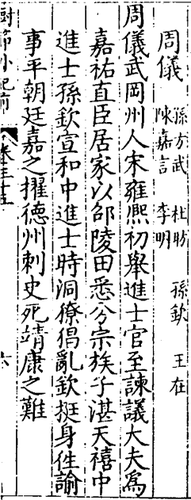 周儀 孫方武 杜昉 孫欽 王在
陳嘉言 李明
周儀武岡州人宋雍熙初舉進士官至諫議大夫為
嘉祐直臣居家以邵陵田悉分宗族子湛天禧中
進士孫欽宣和中進士時洞獠倡亂欽挺身往諭
事平朝廷嘉之擢德州刺史死靖康之難
六